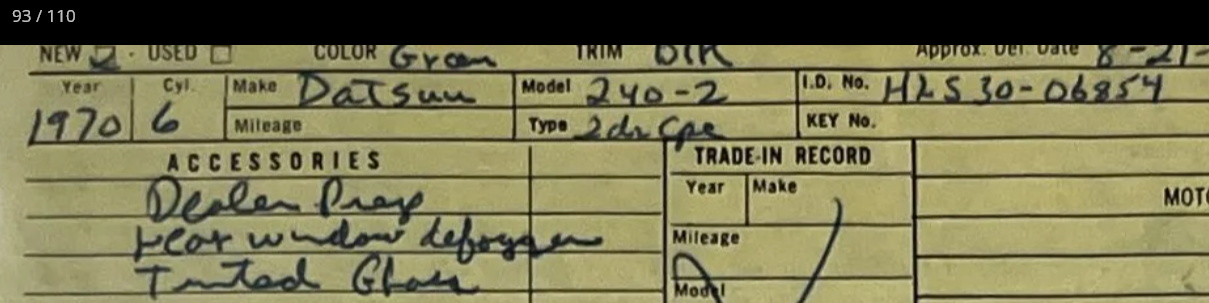 93 / 110
NEW ☑ - USED ☐ COLOR Green TRIM Blk Approx. Del. Date 8-21-
Year Cyl. Make Datsun Model 240-Z I.D. No. HLS30-06854
1970 6 Mileage Type 2dr Cpe KEY No.
ACCESSORIES TRADE-IN RECORD
Dealer Prep Year Make MOTO
Rear window defogger Mileage
Tinted Glass Model